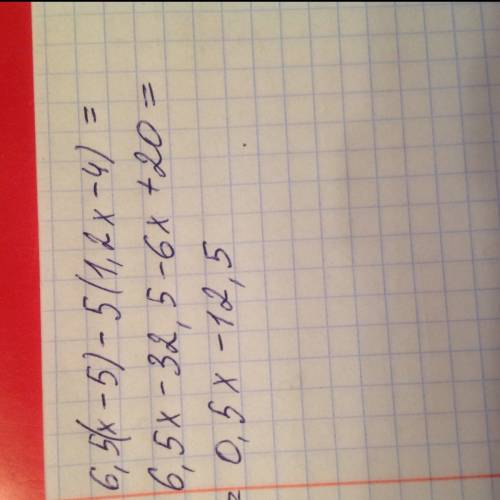 6,5(x-5)-5(1,2x-4)=
6,5x-32,5-6x+20=
= 0,5x-12,5